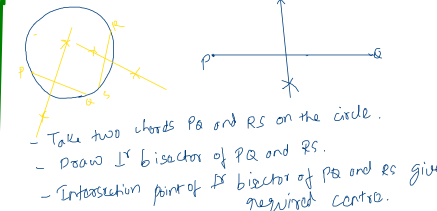 R
P
Q S
P Q
- Take two chords PQ and RS on the circle.
- Draw ⊥r bisector of PQ and RS.
- Intersection point of ⊥r bisector of PQ and RS give
required centre.